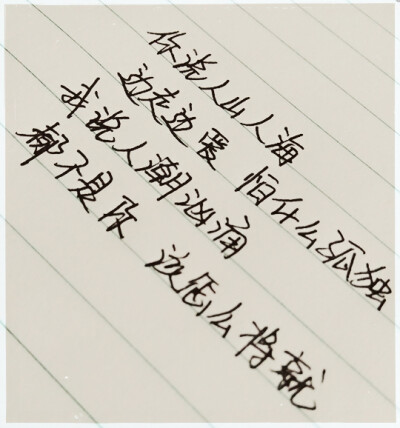 你说人山人海
边走边爱 怕什么孤独
我说人潮汹涌
都不是你 该怎么将就